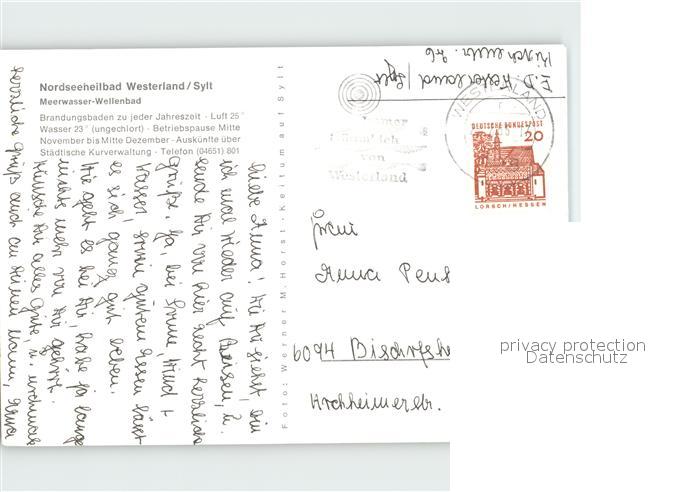 Nordseeheilbad Westerland/Sylt
Meerwasser-Wellenbad
Brandungsbaden zu jeder Jahreszeit · Luft 25°
Wasser 23° (ungechlort) · Betriebspause Mitte
November bis Mitte Dezember · Auskünfte über
Städtische Kurverwaltung · Telefon (04651) 801
Liebe Anna! Wie Du siehst, bin
ich mal wieder auf Reisen, u.
sende Dir von hier recht herzliche
Grüße. Ja, bei Sonne, Wind +
Wasser, sowie gutem Essen lässt
es sich ganz gut leben.
Wie geht es bei Dir, habe ja lange
nichts mehr von Dir gehört.
Wünsche Dir alles Gute, u. nochmals
herzliche Grüße auch an Deinen Mann,
Foto: Werner M. Horst · Keitum auf Sylt
E.D. Westerland/Sylt
WESTERLAND
von
Westerland
DEUTSCHE BUNDESPOST
20
LORSCH/HESSEN
Frau
Anna
6094 Bischofsh
privacy protection
Datenschutz